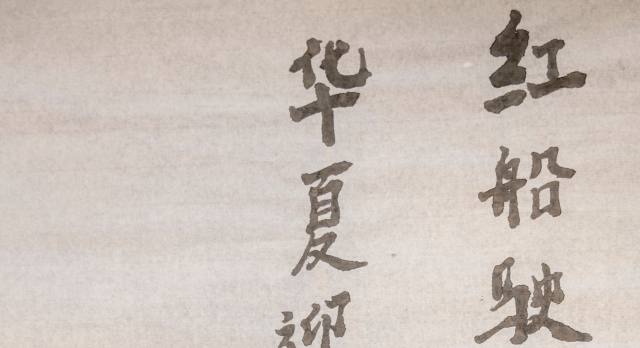 红船驶
华夏迎